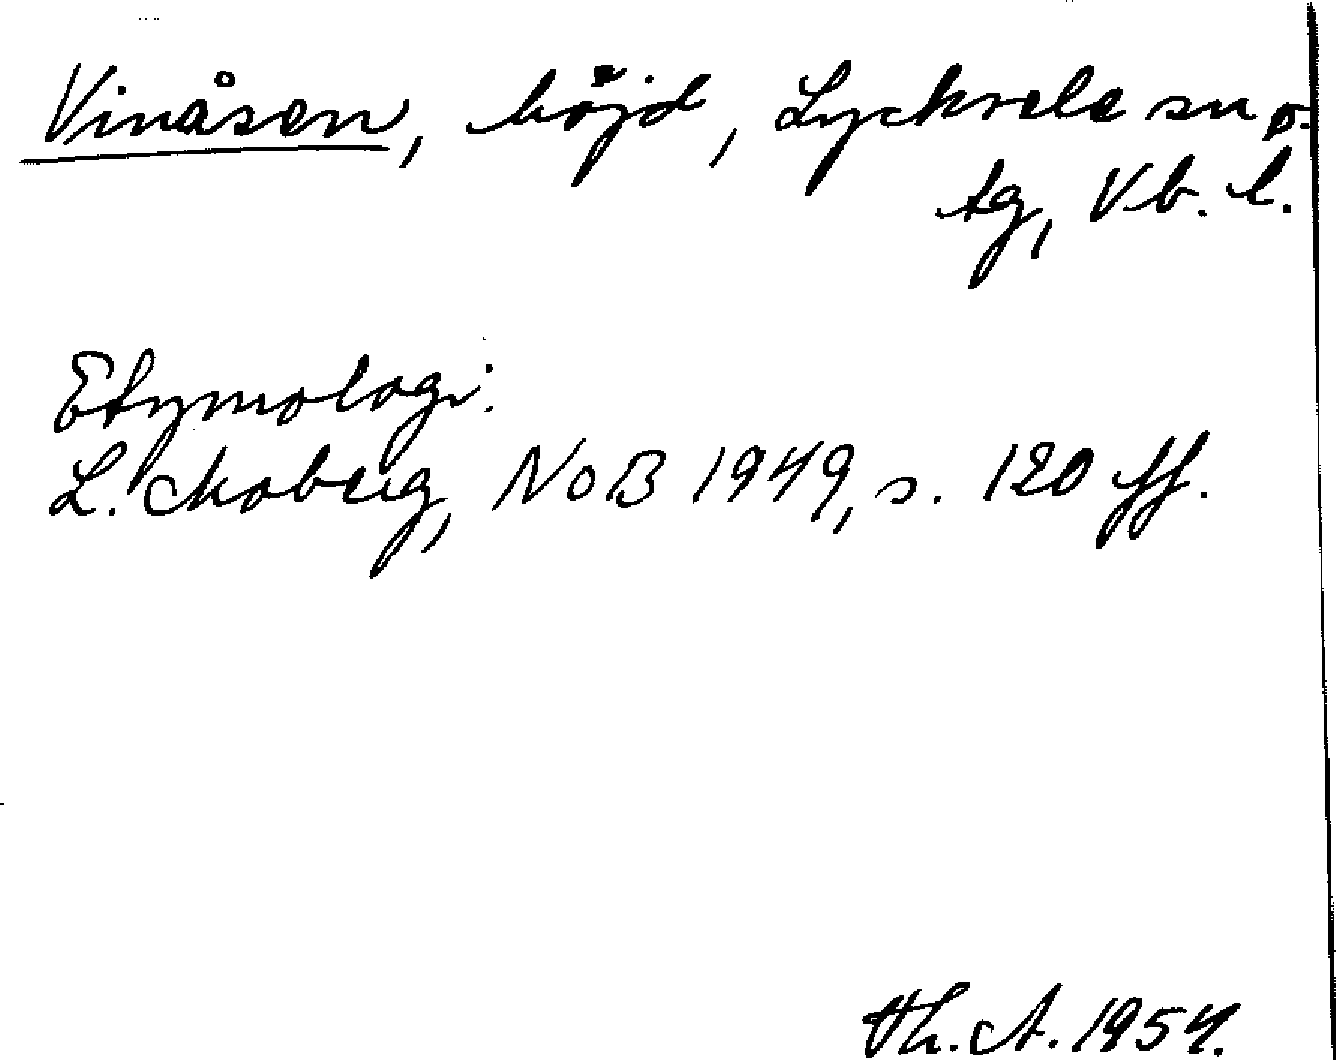 Vinåsen, höjd, Lycksele sn o.
tg, Vb. l.
Etymologi:
L. Moberg, NoB 1949, s. 120 ff.
Th. A. 1954.